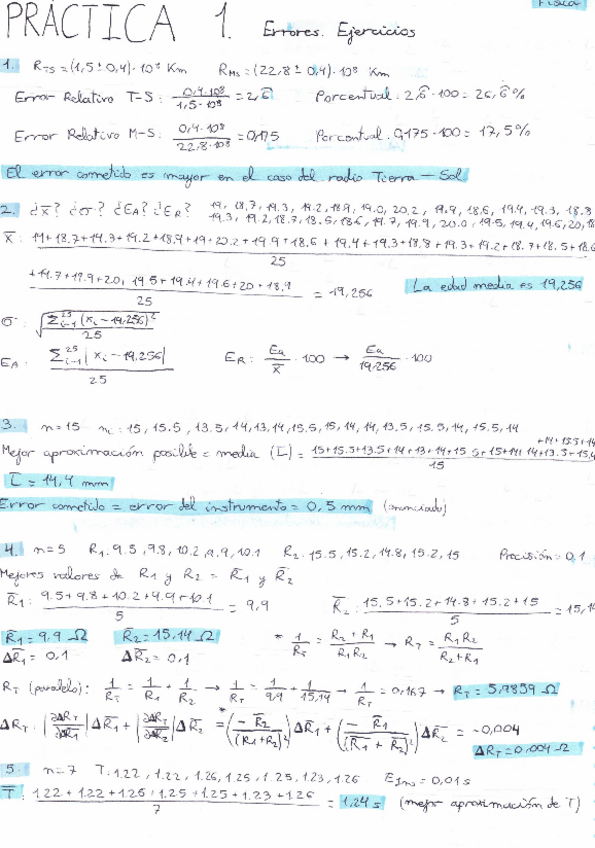 Física
PRÁCTICA 1. Errores. Ejercicios
1. R_TS = (1,5 ± 0,4)·10⁸ Km R_MS = (22,8 ± 0,4)·10⁸ Km
Error Relativo T-S: 0,4·10⁸ / 1,5·10⁸ = 2,6̂ Porcentual: 2,6̂·100 = 26,6̂ %
Error Relativo M-S: 0,4·10⁸ / 22,8·10⁸ = 0,175 Porcentual: 0,175·100 = 17,5%
El error cometido es mayor en el caso del radio Tierra - Sol
2. ¿x̄? ¿σ? ¿E_A? ¿E_R? 19, 18,7, 19,3, 19,2, 18,9, 19,0, 20,2, 19,9, 18,6, 19,4, 19,3, 18,8
19,3, 19,2, 18,7, 18,5, 18,6, 19,7, 19,9, 20,0, 19,5, 19,4, 19,6, 20, 18
x̄: 19+18,7+19,3+19,2+18,9+19+20,2+19,9+18,6+19,4+19,3+18,8+19,3+19,2+18,7+18,5+18,6
25
+19,7+19,9+20, 19,5+19,4+19,6+20+18,9 / 25 = 19,256 La edad media es 19,256
σ: √(Σ²⁵ᵢ₌₁ (xᵢ - 19,256)² / 25)
E_A: Σ²⁵ᵢ₌₁ |xᵢ - 19,256| / 25 E_R: Ea / x̄ · 100 → Ea / 19,256 · 100
3. n=15 15, 15.5, 13.5, 14, 13, 14, 15.5, 15, 14, 14, 13.5, 15.5, 14, 15.5, 14
Mejor aproximación posible = media (L̄) = 15+15.5+13.5+14+13+14+15.5+15+14+14+13.5+15,5 +14+15.5+14 / 15
L̄ = 14,4 mm
Error cometido = error del instrumento = 0,5 mm (enunciado)
4. n=5 R₁: 9.5, 9.8, 10.2, 9.9, 10.1 R₂: 15.5, 15.2, 14.8, 15.2, 15 Precisión = 0,1
Mejores valores de R₁ y R₂ = R̄₁ y R̄₂
R̄₁: 9.5+9.8+10.2+9.9+10.1 / 5 = 9,9 R̄₂: 15.5+15.2+14.8+15.2+15 / 5 = 15,14
R̄₁ = 9,9 Ω R̄₂ = 15,14 Ω * 1/R_T = R₂+R₁ / R₁R₂ → R_T = R₁R₂ / R₂+R₁
ΔR̄₁ = 0,1 ΔR̄₂ = 0,1
R_T (paralelo): 1/R_T = 1/R₁ + 1/R₂ → 1/R_T = 1/9,9 + 1/15,14 → 1/R_T = 0,167 → R_T = 5,9859 Ω
ΔR_T: |∂ΔR_T/∂ΔR₁| ΔR̄₁ + |∂ΔR_T/∂ΔR₂| ΔR̄₂ *= (-R̄₂/(R₁+R₂)²) ΔR̄₁ + (-R̄₁/(R̄₁+R̄₂)²) ΔR̄₂ = -0,004
ΔR_T = 0,004 Ω
5. n=7 T: 1.22, 1.22, 1.26, 1.25, 1.25, 1.23, 1.26 E_Ins = 0,01 s
T̄: 1.22+1.22+1.26+1.25+1.25+1.23+1.26 / 7 = 1,24 s (mejor aproximación de T)